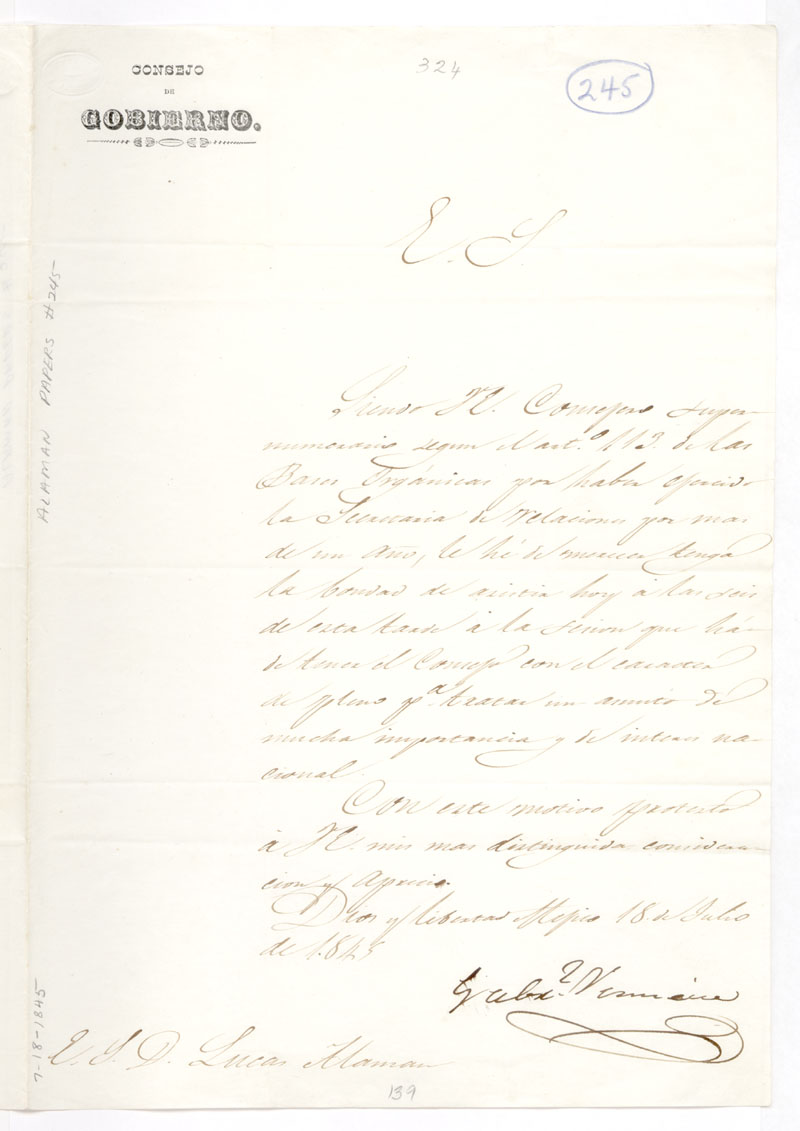 CONSEJO
DE
GOBIERNO.
324
245
E. S.
Siendo V.E. Consejero super-
numerario, segun el art.º 113. de las
Bases Orgánicas por haber ejercido
la Secretaria de Relaciones por mas
de un año, le hé de merecer tenga
la bondad de asistir hoy á las seis
de esta tarde á la sesion que há
de tener el Consejo con el caracter
de pleno pª. tratar un asunto de
mucha importancia y de interes na-
cional.
Con este motivo protesto
á V.E. mis mas distinguida considera-
cion y aprecio.
Dios y libertad Mejico 18. de Julio
de 1.845
Gabr.l
E. S. D. Lucas Alaman
139
ALAMAN PAPERS #245
7-18-1845